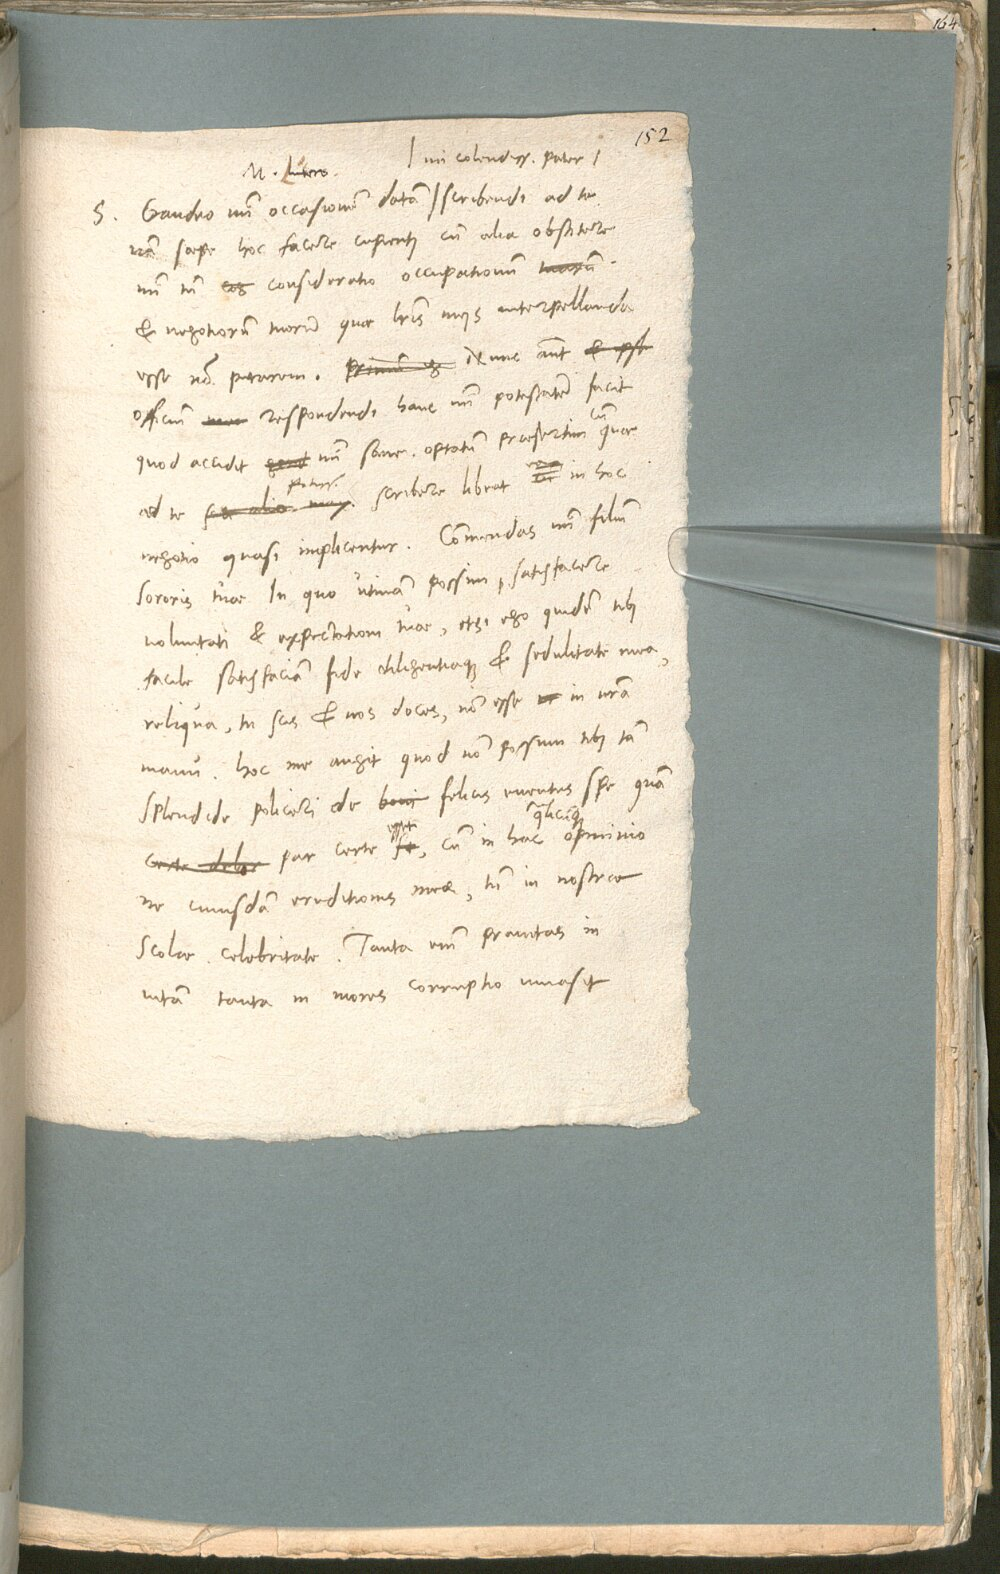 164
152
M. Lutero.
| mi colendiss. pater |
S. Gaudeo mihi occasionem datam | scribendi ad te
nam sæpe hoc facere cupienti cum alia obstitere
mihi tum consideratio occupationum
& negotiorum tuorum quæ literis meis interpellanda
esse non putarem. Nunc autem
officium respondendi hanc mihi potestatem facit
quod accidit mihi sane optatum præsertim cum quæ
ad te potiss. scribere libeat in hoc
negotio quasi implicentur. Commendas mihi filium
sororis tuæ In quo utinam possim satisfacere
voluntati & expectationi tuæ, etsi ego quidem tibi
facile satisfaciam fide diligentiaque & sedulitate mea,
reliqua, tu scis & nos doces, non esse in nostra
manu. hoc me angit quod non possum tibi tam
splendide policeri de felicis eventus spe quam
par certe esset, cum in hac qualicunque opinio
ne cuiusdam eruditionis meæ, tum in nostræ
scolæ celebritate. Tanta enim pravitas in
vitam tanta in mores corruptio invasit